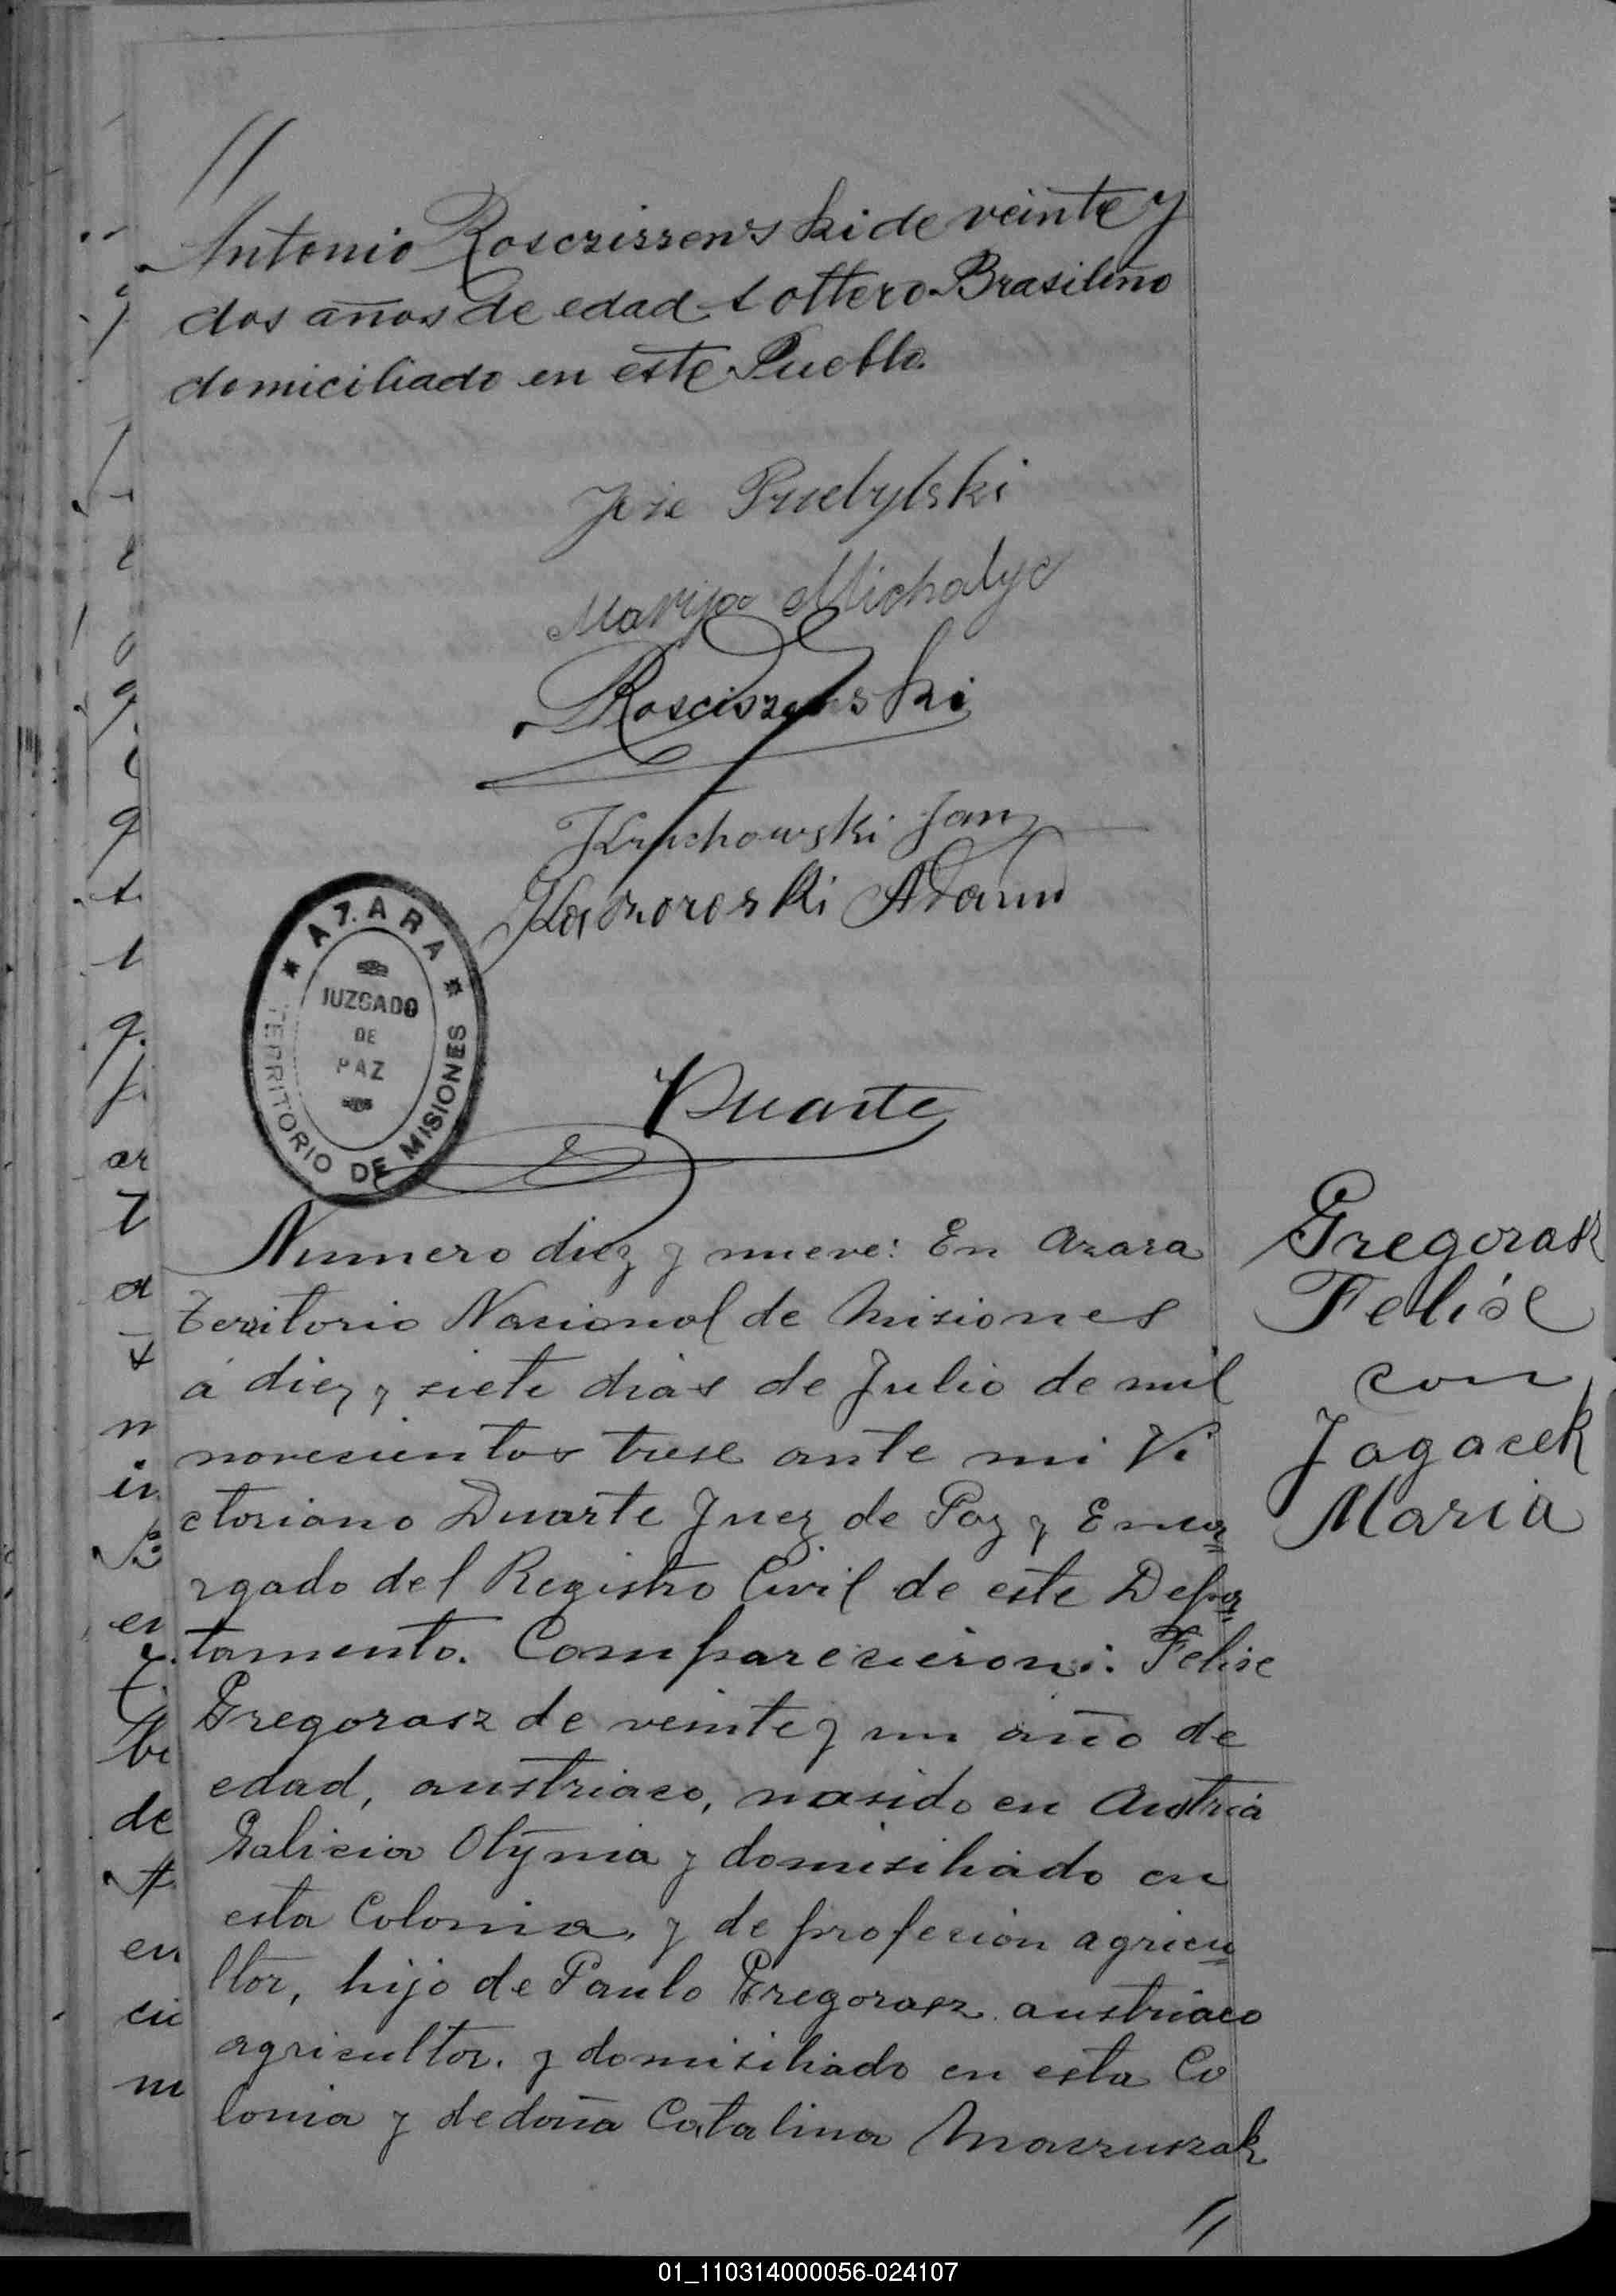 Antonio Rosczirrenski de veinte y
dos años de edad soltero Brasileño
domiciliado en este Pueblo.
Jose Prudylski
Maryja Michalyc
Rosciszewski
Jan
Adam
AZARA
JUZGADO
DE
PAZ
TERRITORIO DE MISIONES
Duarte
Numero diez y nueve: En Azara
Territorio Nacional de Misiones
á diez y siete dias de Julio de mil
novecientos trese ante mi Vi
ctoriano Duarte Juez de Paz y Enca
rgado del Registro Civil de este Depar
tamento. Comparecieron: Felise
Gregorasz de veinte y un año de
edad, austriaco, nasido en Austria
Galicia Olynia y domisiliado en
esta Colonia, y de profecion agricu
ltor, hijo de Paulo Gregorasz austriaco
agricultor. y domisiliado en esta Co
lonia y de doña Catalina
Gregorasz
Felise
con
Jagacek
Maria
01_110314000056-024107